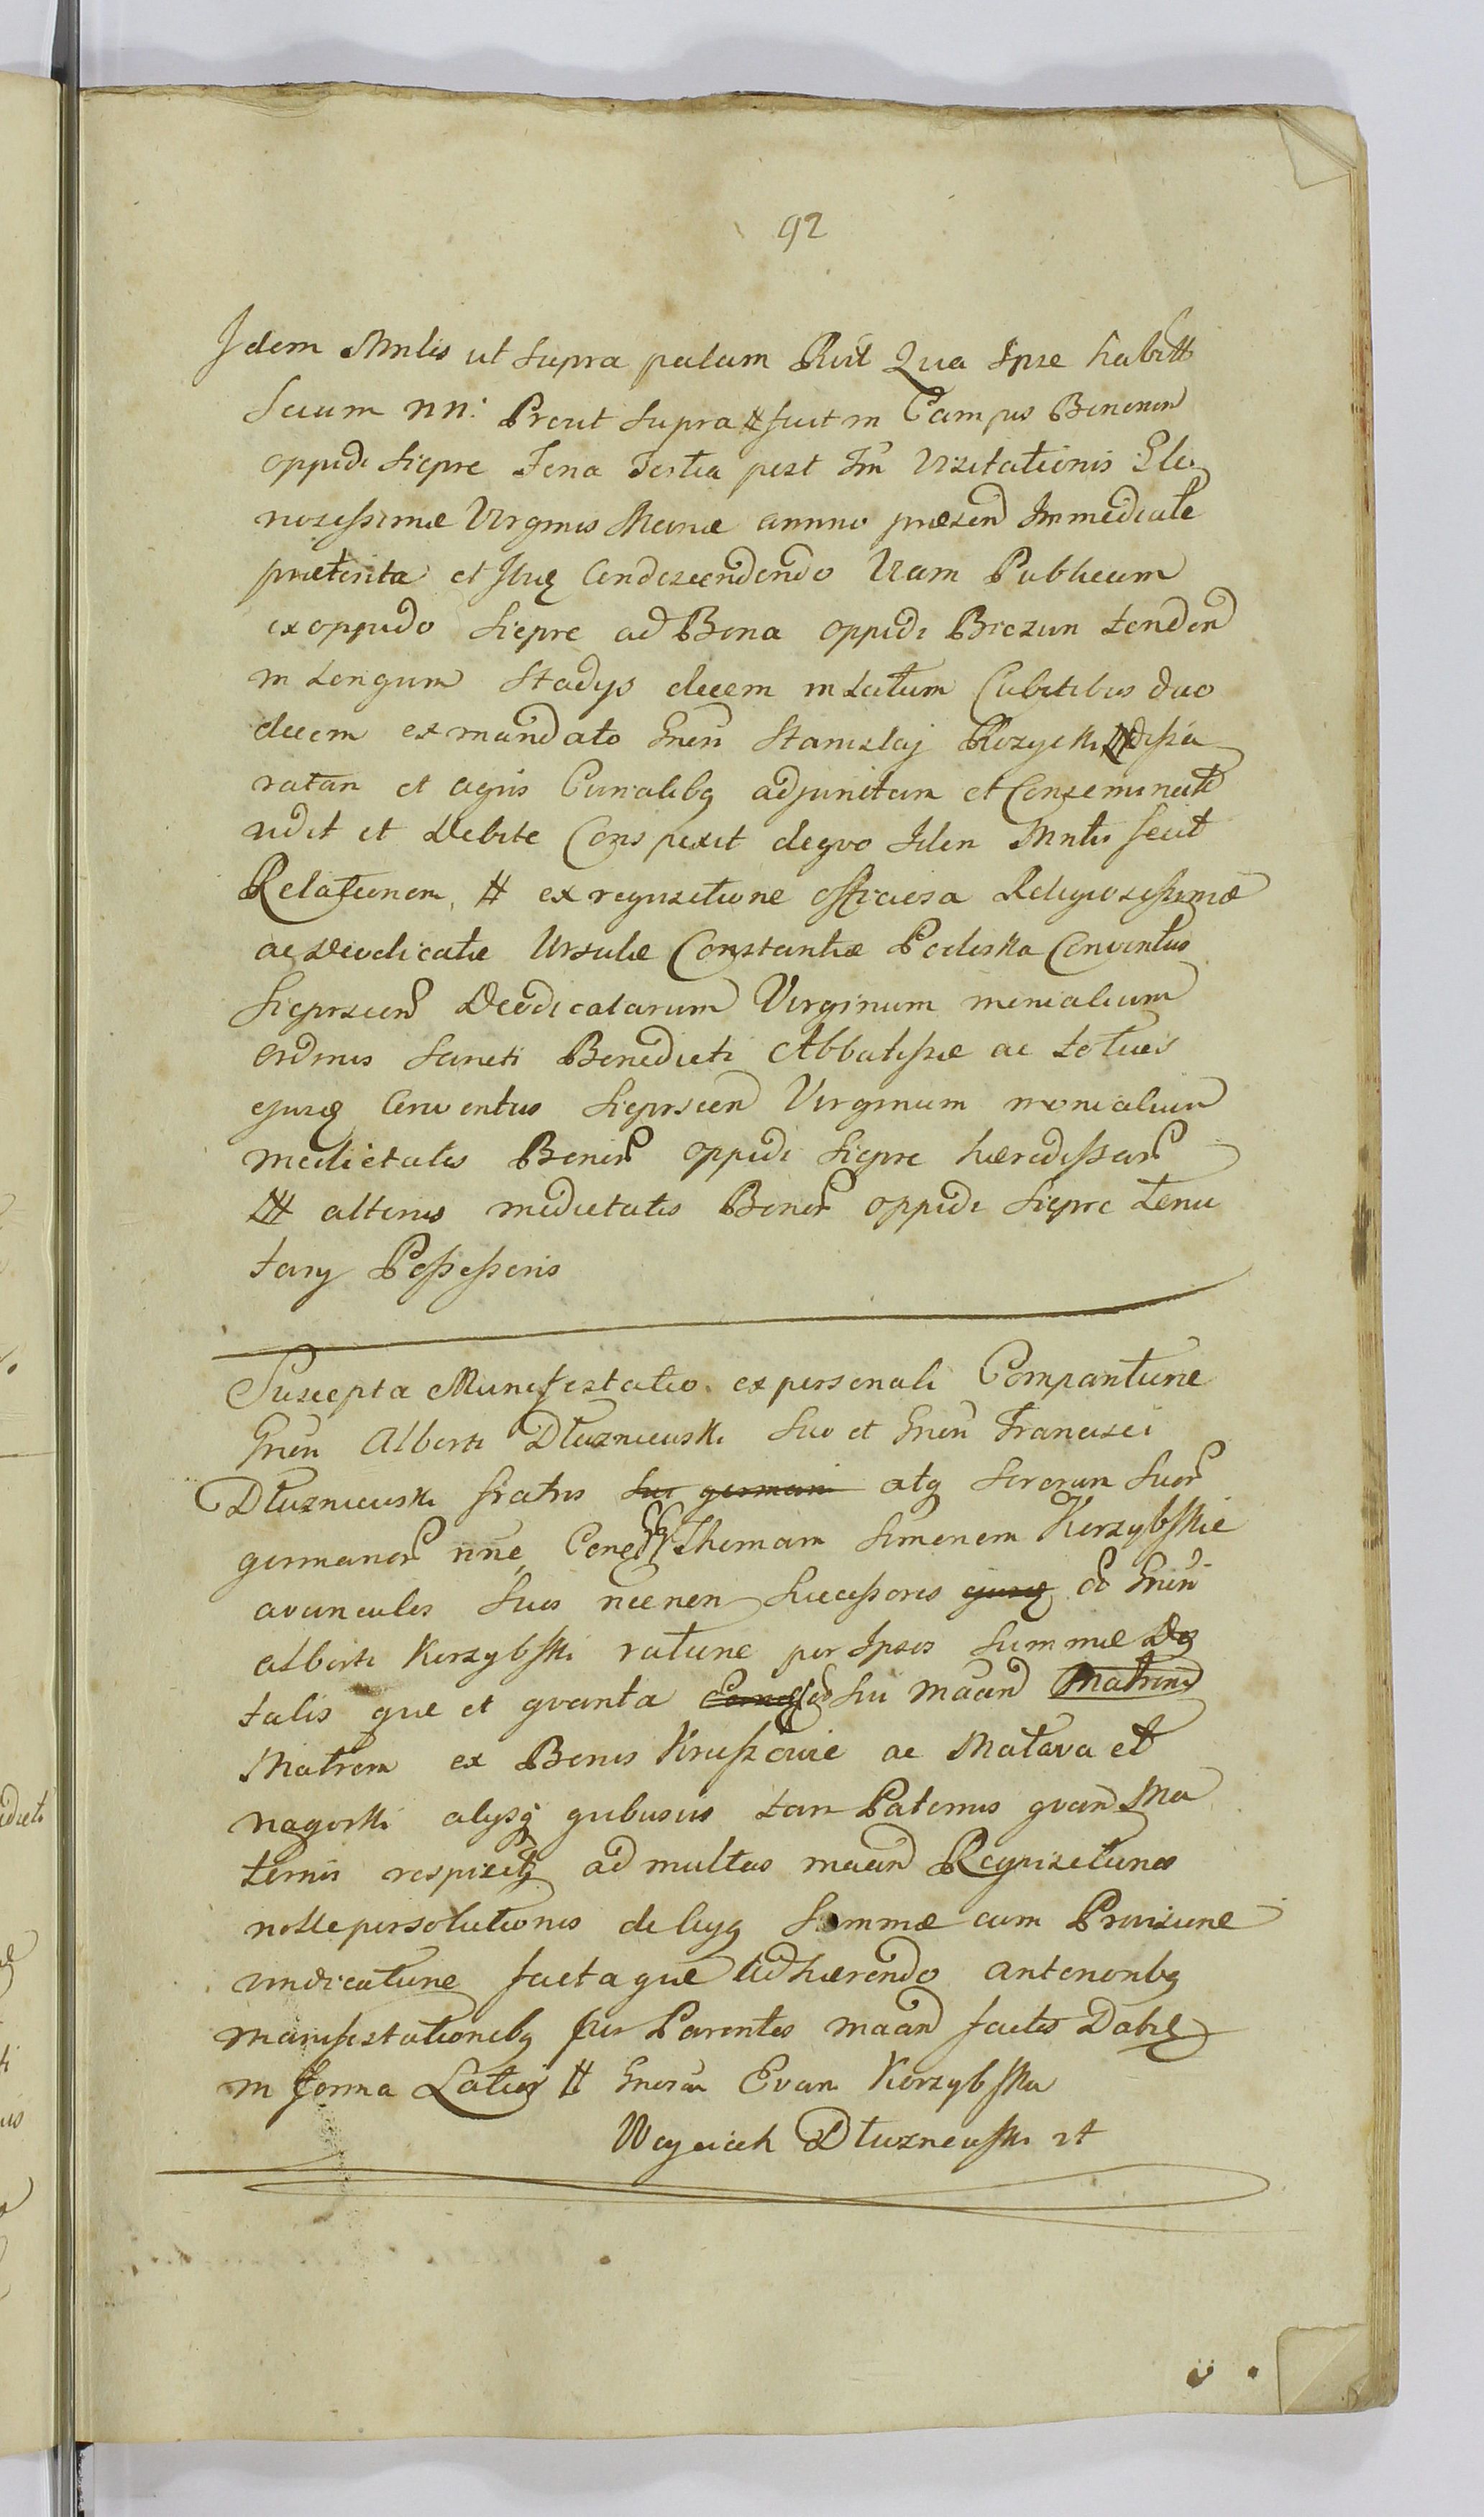 92
Idem Mnlis ut supra palam Rlit Qua Ipse habitt
secum nn: Prout supra # fuit in Campis Bonorum
oppidi Sieprc Feria Tertia post Fm Visitationis Glo
riosissimæ Virginis Mariæ annno præsen Immediate
præterita et Ibiq Condescendendo Viam Publicam
ex oppido Sieprc ad Bona oppidi Biezun tenden
in Longum Stadys decem in Latum Cubitibus duo
decem ex mandato Gnen Stanislaj Rozycki
ratam et agris Curialibq adjunctam et Conseminat
vidit et Debite Conspexit de quo Idem Mnlis fecit
Relationem # ex requisitione officiosa Religiosissimæ
ac Deodicatæ Ursulæ Constantiæ Podeska Conventus
Sieprscen Deodicatarum Virginum monialium
ordinis Sancti Benedicti Abbatissæ ac totius
ejusq Conventus Sieprscen Virginum monialium
medietatis Bonor oppidi Sieprc hæredissar
# alterius medietatis Bonor oppidi Sieprc tenu
tary Possessoris
Suscepta Manifestatio ex personali Comparitione
Gnen Alberti Dłuzniewski suo et Gnen Francisci
Dłuzniewski fratris sui germani atq sororum suor
germanor nne Thomam Simonem Korzybskie
avunculos suos necnon successores ejusq Gnen
Alberti Korzybski ratione per Ipsos summæ Do
talis quæ et quanta sui maan Matrem
Matrem ex Bonis Kruszowie ac Matava et
nagorki alysq quibusvis tam Paternis quam Ma
ternis ad multas maan Requisitiones
nollepersolutionis deliyq Summæ cum Provisione
vindicatione factaque adhærendo anterioribq
manifestationibq per Parentes maan factis
in forma Latiori # Evam Korzybska
Woyciech Dłuzniewski